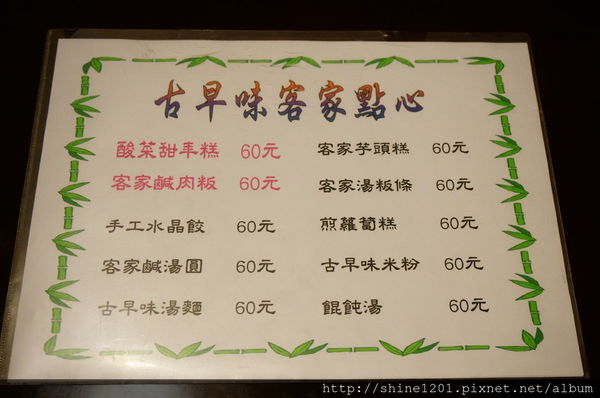 古早味客家點心
酸菜甜年糕 60元
客家鹹肉粄 60元
手工水晶餃 60元
客家鹹湯圓 60元
古早味湯麵 60元
客家芋頭糕 60元
客家湯粄條 60元
煎蘿蔔糕 60元
古早味米粉 60元
餛飩湯 60元
http://shine1201.pixnet.net/album